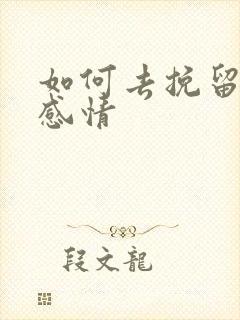 如何去挽留
感情
段文龍